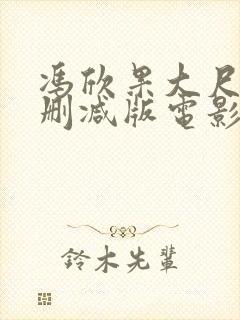 馮欣果大尺
刪減版電影
鈴木先輩